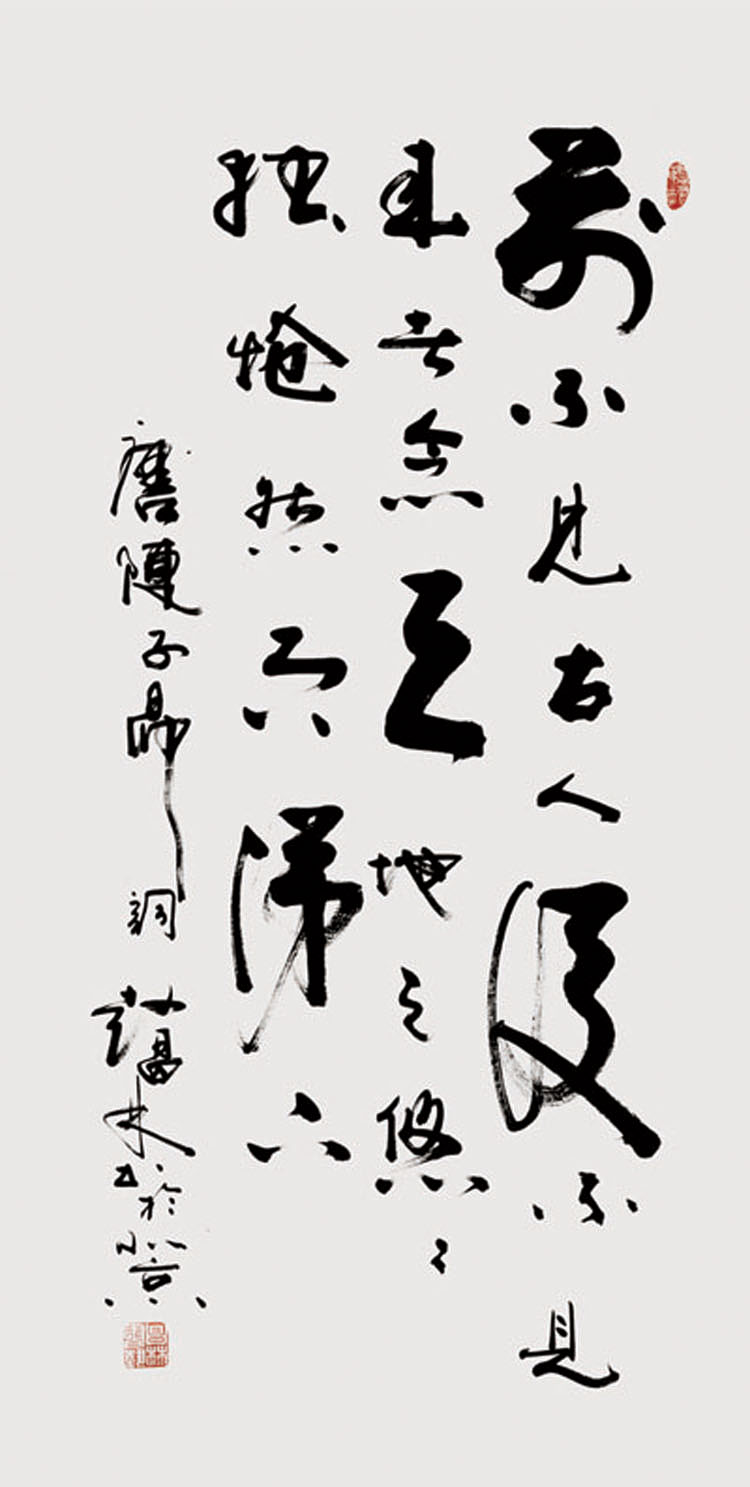 前不见古人后不见
来者念天地之悠悠
独怆然而涕下
唐陈子昂词 书于北京